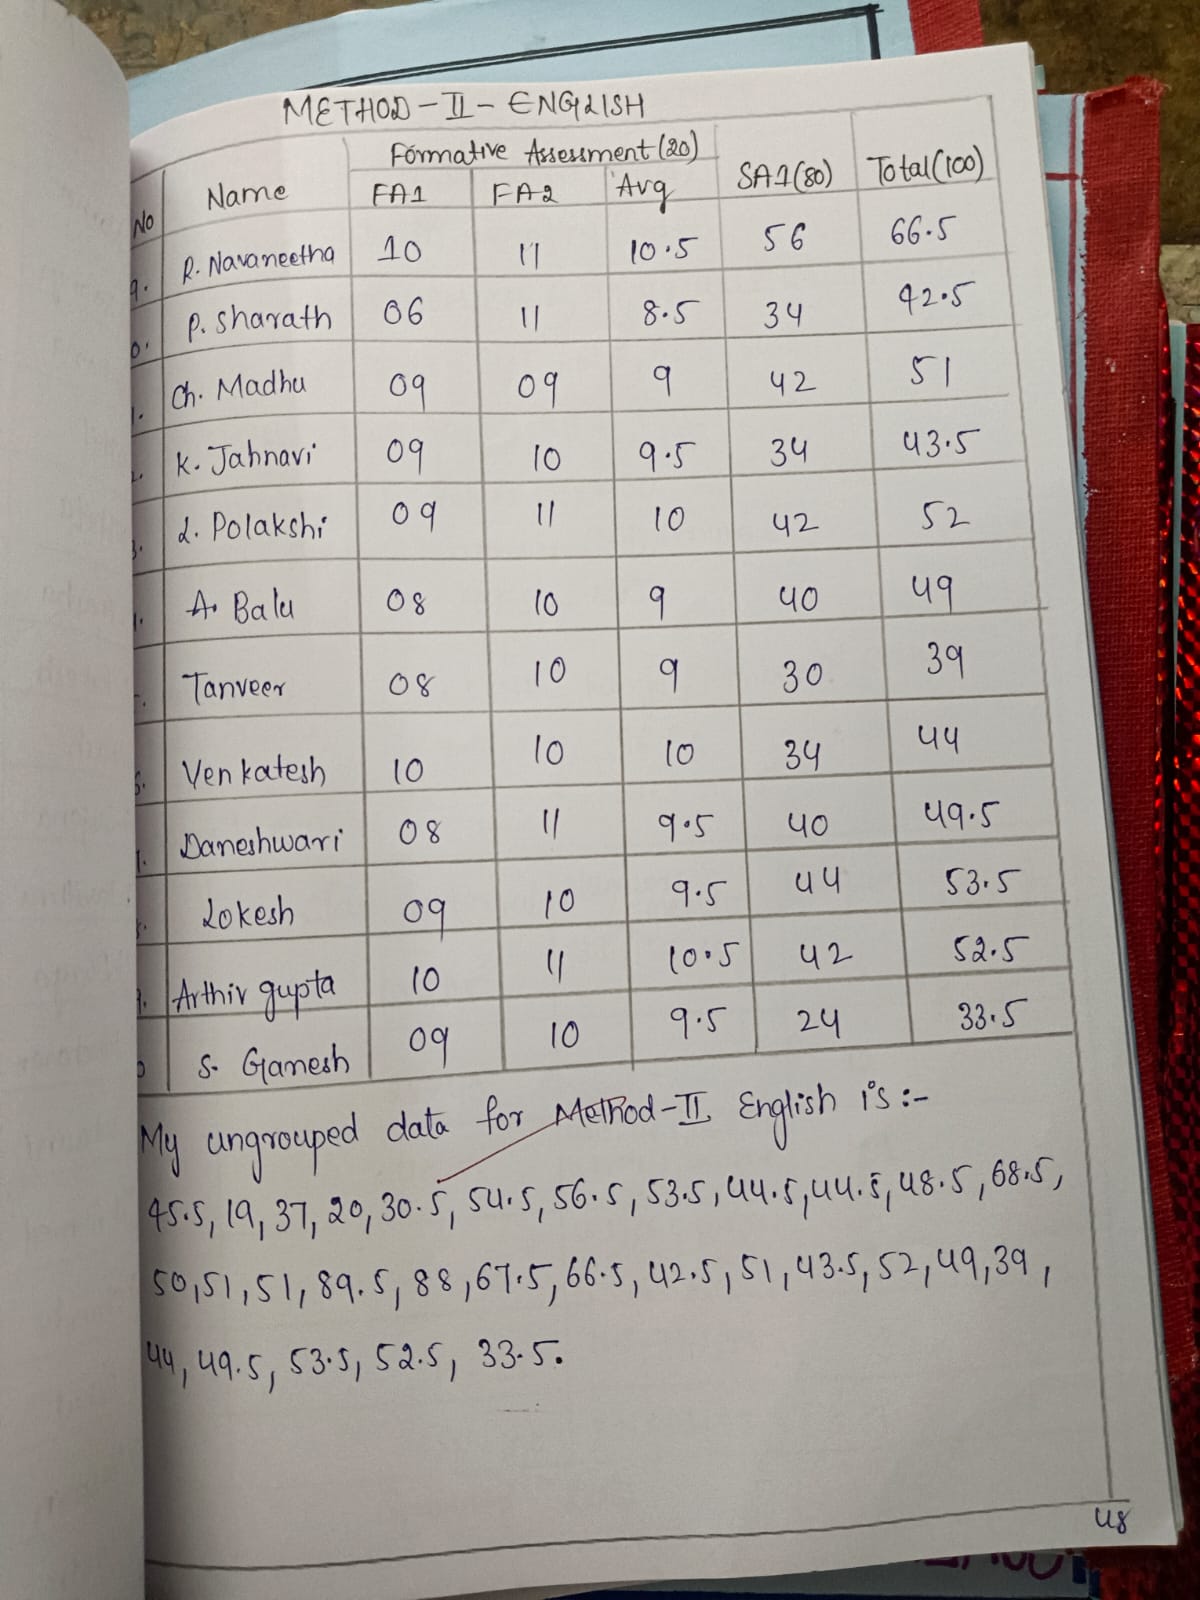 METHOD-II-ENGLISH
No Name Formative Assessment (20) SA1(80) Total(100)
FA1 FA2 Avg
9. R. Navaneetha 10 11 10.5 56 66.5
0. P. Sharath 06 11 8.5 34 42.5
1. Ch. Madhu 09 09 9 42 51
2. K. Jahnavi 09 10 9.5 34 43.5
3. L. Polakshi 09 11 10 42 52
A. Balu 08 10 9 40 49
Tanveer 08 10 9 30 39
Venkatesh 10 10 10 34 44
Daneshwari 08 11 9.5 40 49.5
Lokesh 09 10 9.5 44 53.5
Arthiv gupta 10 11 10.5 42 52.5
S. Ganesh 09 10 9.5 24 33.5
My ungrouped data for Method-II English is:-
45.5, 19, 37, 20, 30.5, 54.5, 56.5, 53.5, 44.5, 44.5, 48.5, 68.5,
50, 51, 51, 89.5, 88, 67.5, 66.5, 42.5, 51, 43.5, 52, 49, 39,
44, 49.5, 53.5, 52.5, 33.5.
48